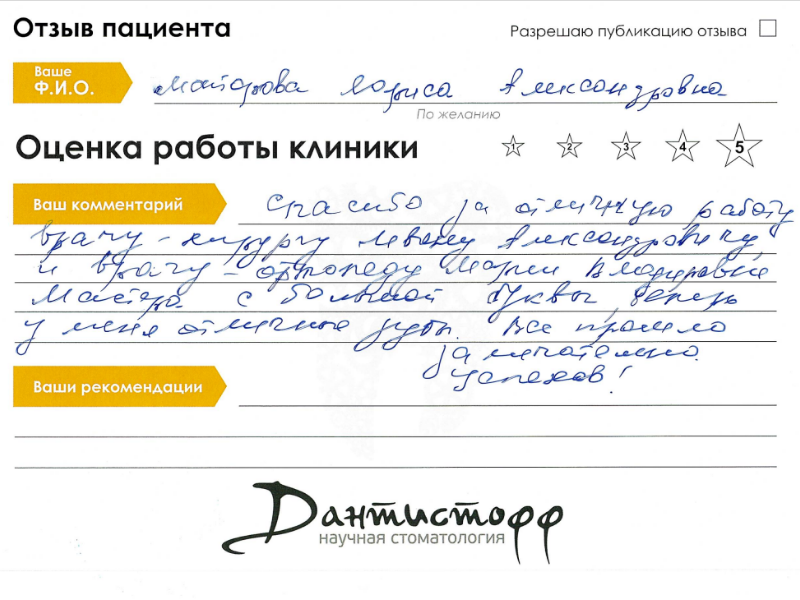 Отзыв пациента
Разрешаю публикацию отзыва
Ваше
Ф.И.О.
Майорова Лариса Александровна
По желанию
Оценка работы клиники
1 2 3 4 5
Ваш комментарий
Спасибо за отличную работу
врачу-хирургу Александровичу
и врачу-ортопеду Марии Владировне
Мастера с большой буквы, теперь
у меня отличные зубы. Все прошло
замечательно.
Успехов!
Ваши рекомендации
Дантистофф
научная стоматология